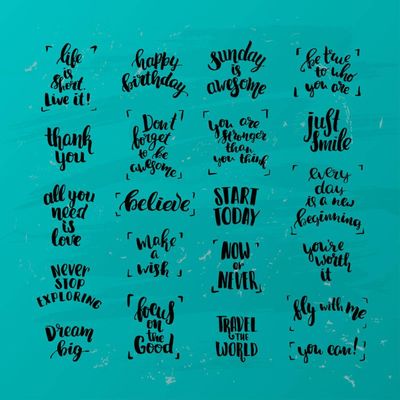 life
is
short.
Live it!
thank
you
all you
need
is
love
Never
STOP
EXPLORING
Dream
big
happy
birthday
Don't
forget
to be
awesome
believe
make
a
wish
focus
on
the
Good
sunday
is
awesome
you are
stronger
than
you think
START
TODAY
NOW
or
NEVER
TRAVEL
THE
WORLD
be true
to who
you are
just
smile
every
day
is a new
beginning
you're
worth
it
fly with me
you can!